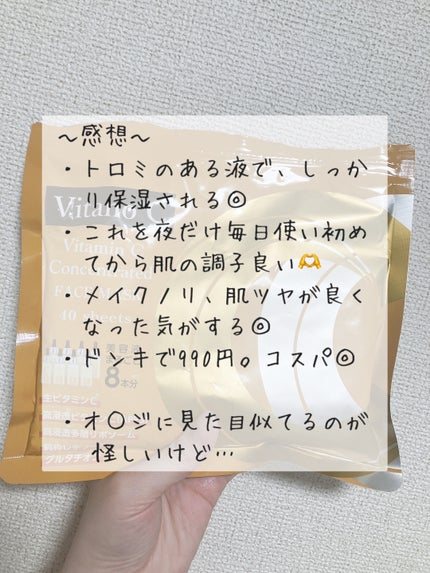 ～感想～
・トロミのある液で、しっか
り保湿される◎
・これを夜だけ毎日使い初め
てから肌の調子良い🫶
・メイクノリ、肌ツヤが良く
なった気がする◎
・ドンキで990円。コスパ◎
・オ〇ジに見た目似てるのが
怪しいけど…
Vitano C
Vitamin C
Concentrated
FACE Mask
40 sheets
美容液
8本分
生ビタミンC